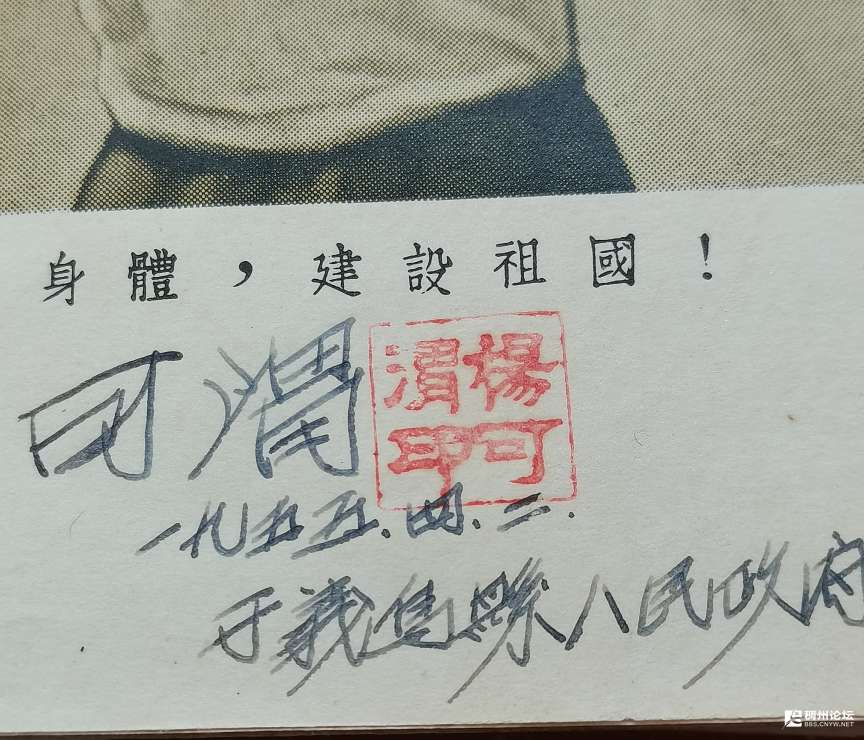 身體，建設祖國！
可渭
楊可
渭印
一九五五.四.二.
于義烏縣人民政府
稠州论坛
BBS.CNYW.NET